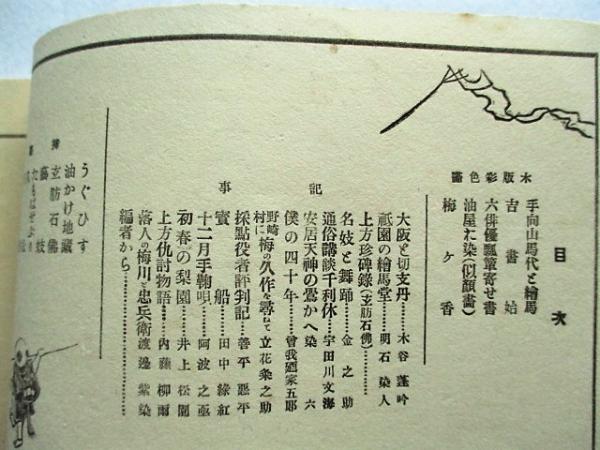 目次
木版彩色畫
手向山馬代と繪馬
吉書始
六俳優瓢簞寄せ書
油屋お染(似顏畫)
梅ヶ香
記事
大阪と切支丹……木谷蓬吟
祇園の繪馬堂……明石染人
上方珍碑錄(玄肪石佛)……
名妓と舞踊……金之助
通俗講談千利休……宇田川文海
安居天神の鶯かへ 染六
僕の四十年……曾我廼家五郎
野崎村に梅の久作を尋ねて 立花粂之助
採點役者評判記……善平惡平
寶船……田中綠紅
十二月手鞠唄……阿波之亟
初春の梨園……井上松園
上方仇討物語……內藤柳雨
落人の梅川と忠兵衛 渡邊紫染
編者から……
うぐひす
油かけ地藏
玄肪石佛